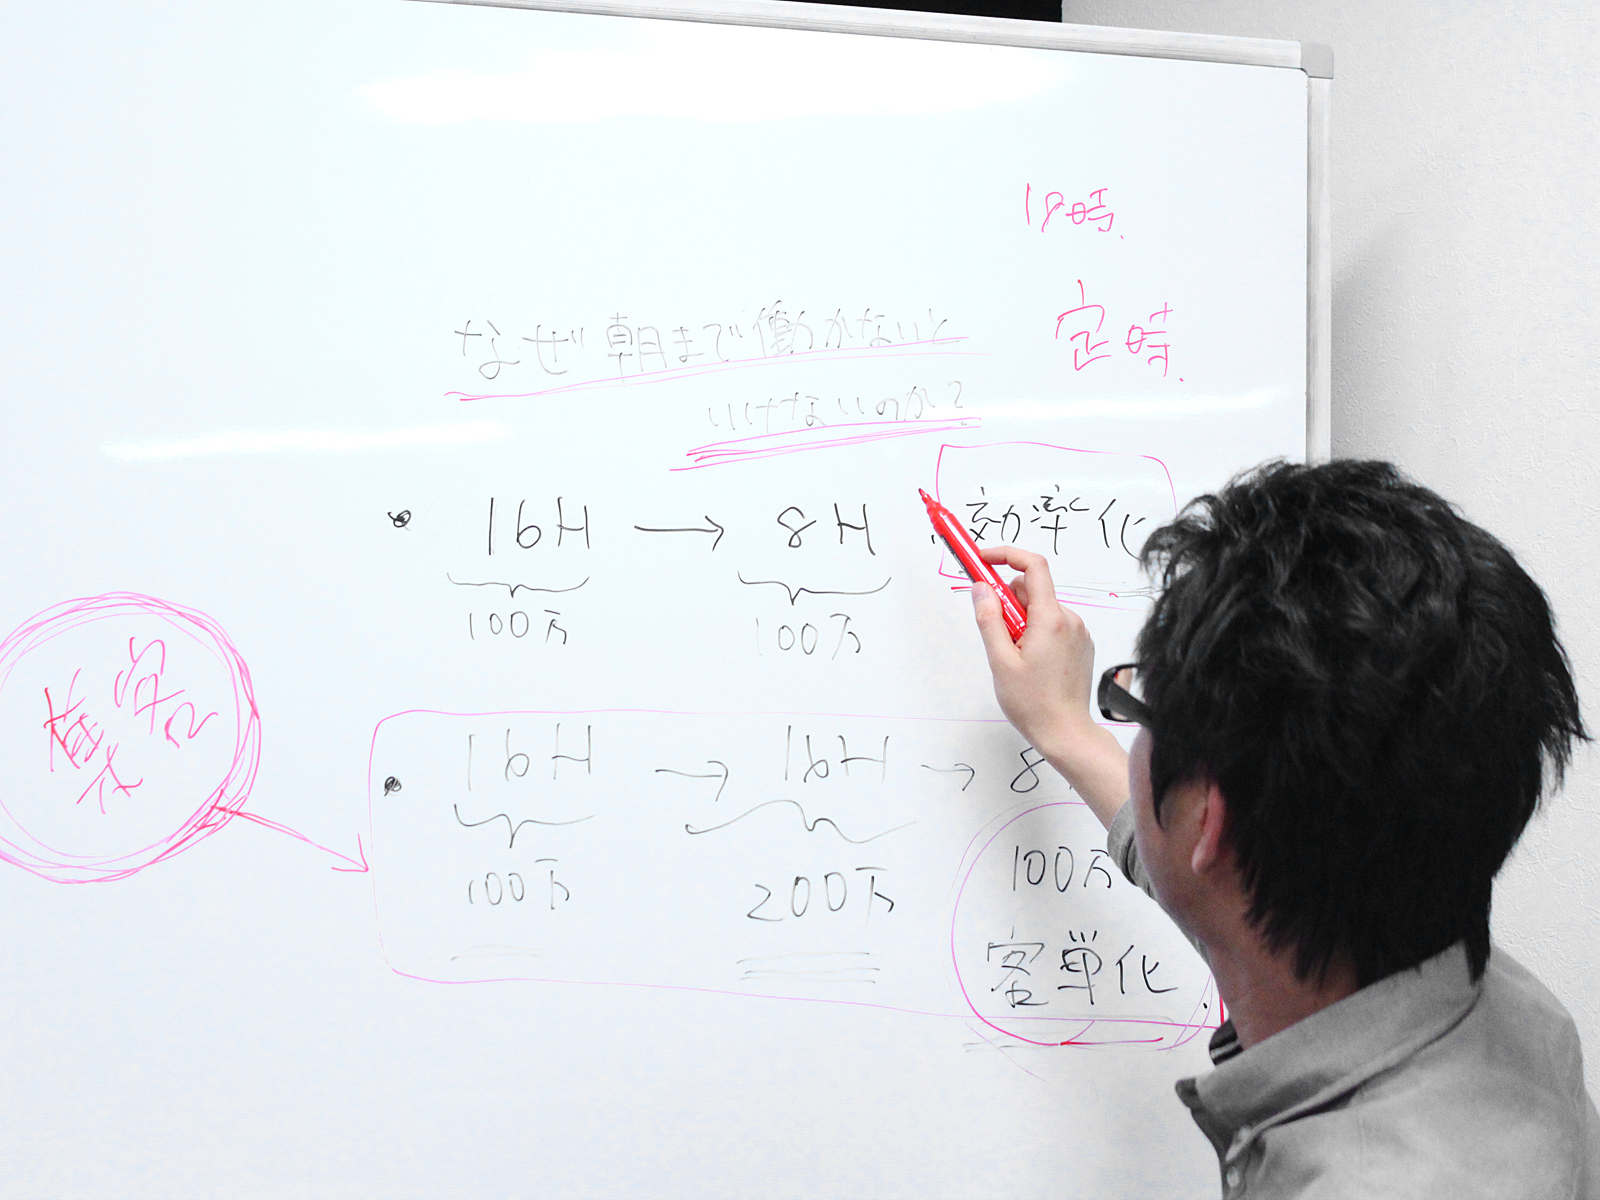 18時.
定時.
なぜ朝まで働かないと
いけないのか?
16H → 8H 効率化
100万 100万
16H → 16H → 8
100万 200万 100万
客単化